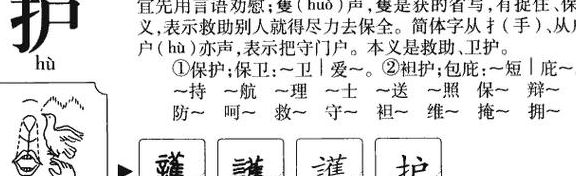 护
hù
宜先用言语劝慰；蒦（huò）声，蒦是获的省写，有捉住、保
义，表示救助别人就得尽力去保全。简体字从扌（手）、从
户（hù）亦声，表示把守门户。本义是救助、卫护。
①保护；保卫：～卫｜爱～。②袒护；包庇：～短｜庇～
～持 ～航 ～理 ～士 ～送 ～照 保～ 辩～
防～ 呵～ 救～ 守～ 袒～ 维～ 掩～ 拥～
護 護 護 护